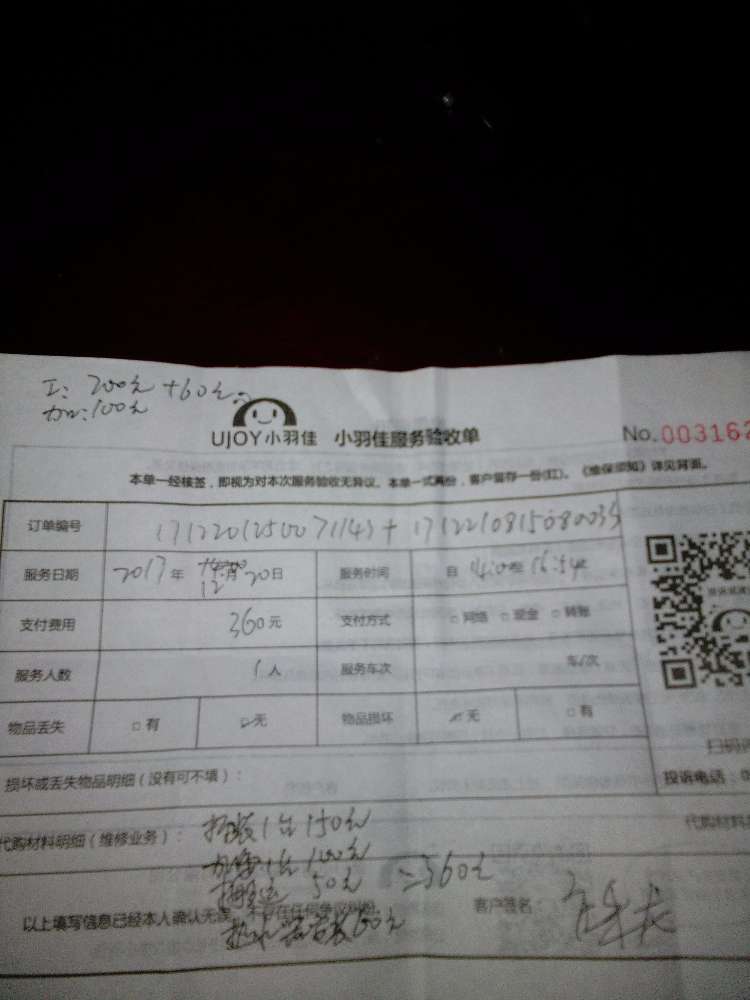 工: 200元 +60元
加: 100元
UJOY小羽佳 小羽佳服务验收单 No.003162
本单一经核签，即视为对本次服务验收无异议。本单一式两份，客户留存一份(红)。《维保须知》详见背面。
订单编号
服务日期 2017年 12月20日 服务时间 自 14:0
支付费用 360元 支付方式 □网络 □现金 □转账
服务人数 1人 服务车次 车/次
物品丢失 □有 □无 物品损坏 □无 □有
扫码
损坏或丢失物品明细（没有可不填）： 投诉电话：0
代购材料明细（维修业务）： 拆装1台150元 代购材料
100元
50元 =360元
以上填写信息已经本人确认无误，不存在任何争议纠纷 客户签名：
60元